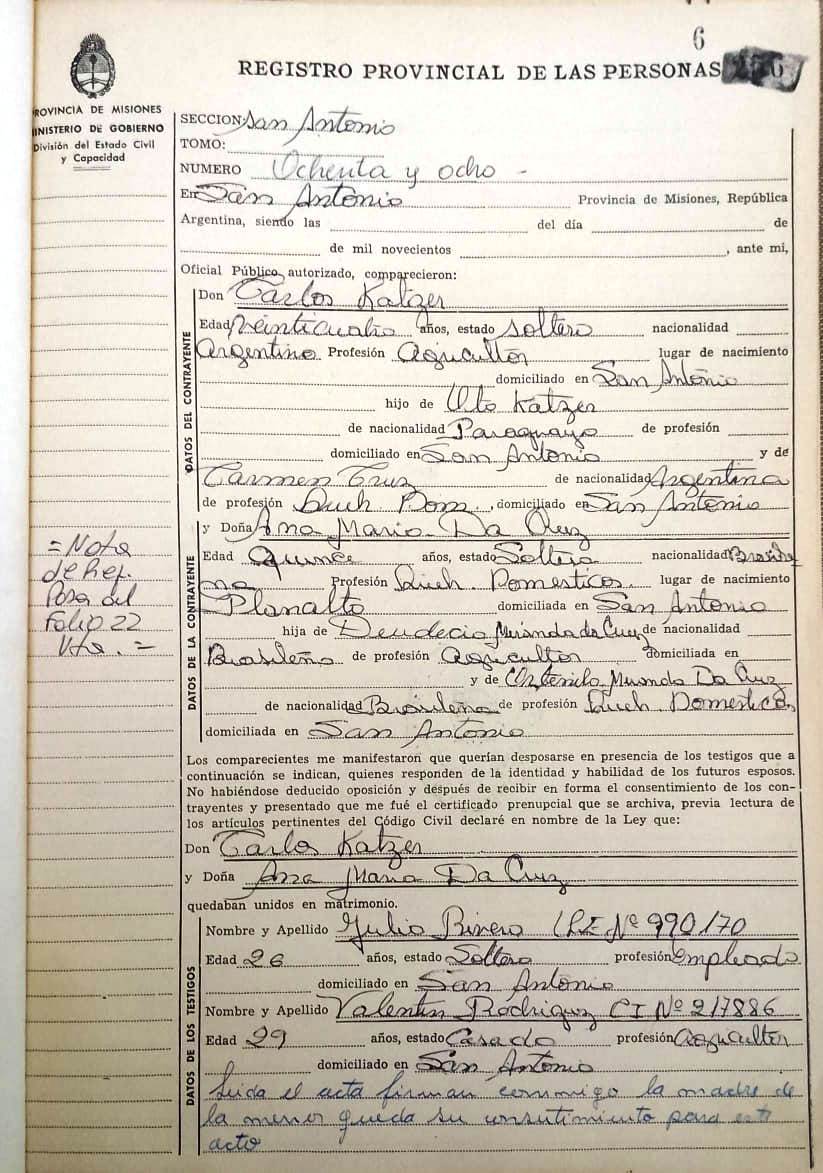 6
REGISTRO PROVINCIAL DE LAS PERSONAS
PROVINCIA DE MISIONES
MINISTERIO DE GOBIERNO
División del Estado Civil
y Capacidad
SECCION: San Antonio
TOMO:
NUMERO Ochenta y ocho -
En San Antonio Provincia de Misiones, República
Argentina, siendo las del día de
de mil novecientos , ante mi,
Oficial Público autorizado, comparecieron:
DATOS DEL CONTRAYENTE
Don Carlos Katzer
Edad Veinticuatro años, estado soltero nacionalidad
Argentino Profesión Agricultor lugar de nacimiento
domiciliado en San Antonio
hijo de Oto Katzer
de nacionalidad Paraguayo de profesión
domiciliado en San Antonio y de
Carmen Cruz de nacionalidad Argentina
de profesión Queh Dom. , domiciliado en San Antonio
y Doña Ana Maria Da Cruz
DATOS DE LA CONTRAYENTE
Edad Quince años, estado Soltera nacionalidad Brasile
na Profesión Queh. Domesticos. lugar de nacimiento
Planalto domiciliada en San Antonio
hija de Deudecio Miranda da Cruz de nacionalidad
Brasileño de profesión Agricultor domiciliada en
y de Miranda Da Cruz
de nacionalidad Brasileña de profesión Queh Domesticos,
domiciliada en San Antonio
= Nota
de Ref.
Pasa del
Folio 22
Vta. =
Los comparecientes me manifestaron que querían desposarse en presencia de los testigos que a
continuación se indican, quienes responden de la identidad y habilidad de los futuros esposos.
No habiéndose deducido oposición y después de recibir en forma el consentimiento de los con-
trayentes y presentado que me fué el certificado prenupcial que se archiva, previa lectura de
los artículos pertinentes del Código Civil declaré en nombre de la Ley que:
Don Carlos Katzer
y Doña Ana Maria Da Cruz
quedaban unidos en matrimonio.
DATOS DE LOS TESTIGOS
Nombre y Apellido Julio Rivero (L.E Nº 990170
Edad 26 años, estado Soltero profesión Empleado
domiciliado en San Antonio
Nombre y Apellido Valentin Rodriguez CI Nº 217886
Edad 29 años, estado Casado profesión Agricultor
domiciliado en San Antonio
Leida el acta firman conmigo la madre de
la menor queda su consetimiento para este
acto